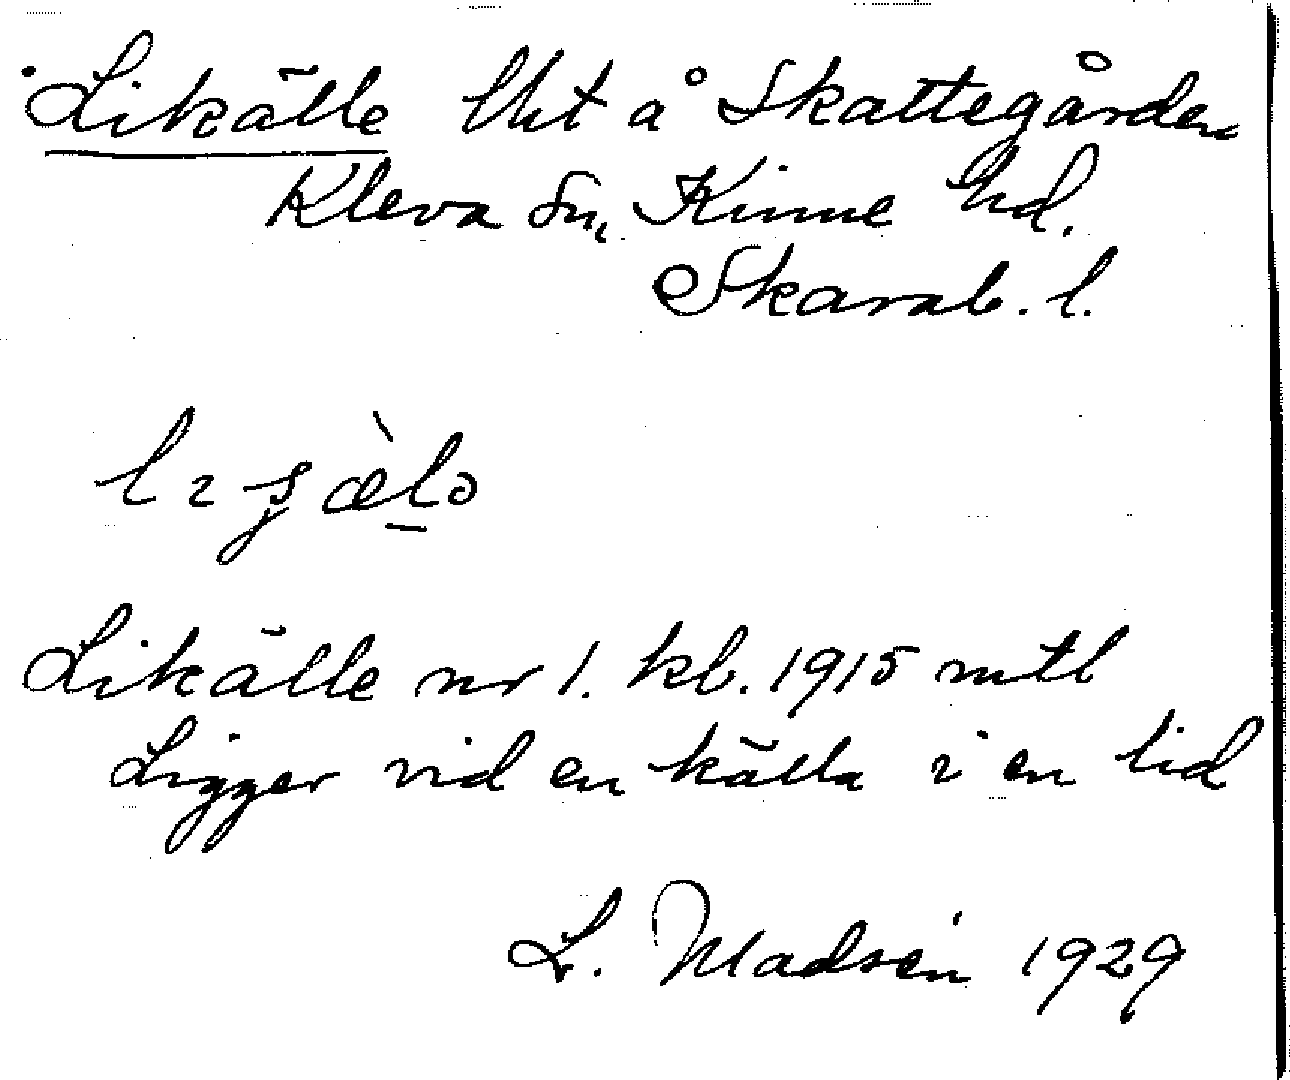 Likälle lht å Skattegården
Kleva sn, Kinne hd.
Skarab. l.
Likälle nr 1. kb. 1915 mtl
Ligger vid en källa i en lid
L. Madsén 1929